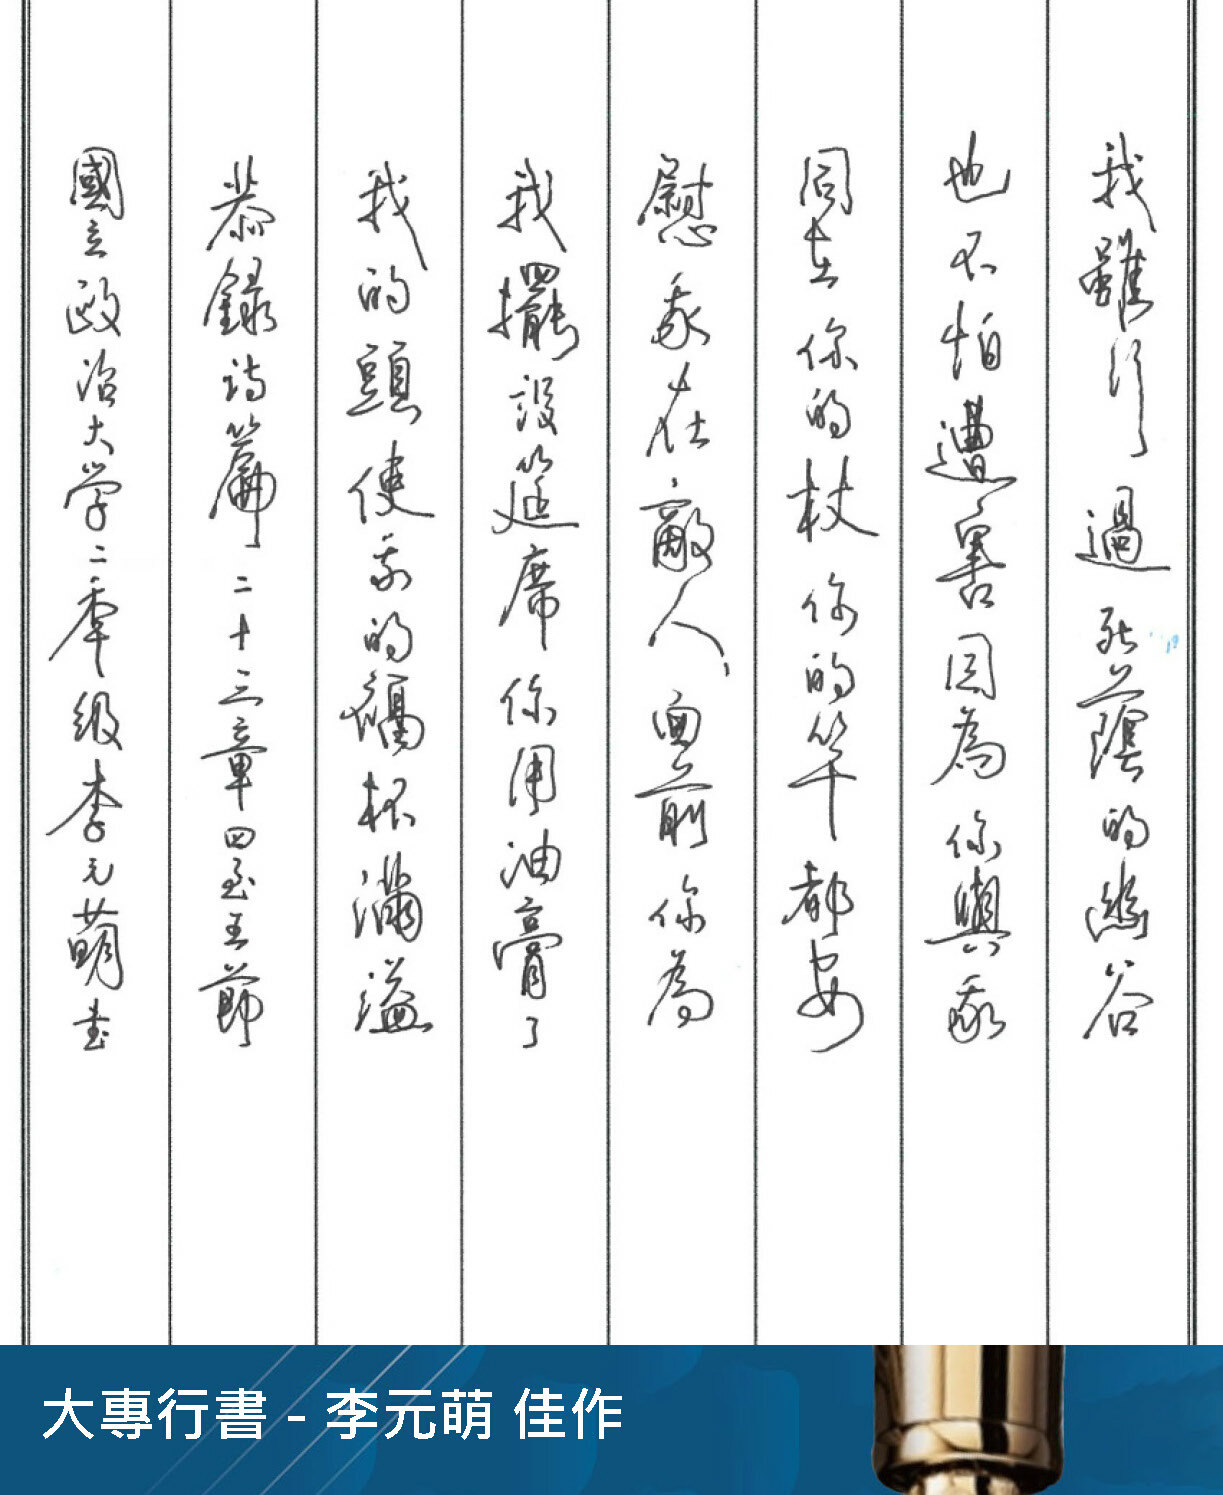 我雖行過死蔭的幽谷
也不怕遭害因為你與我
同在你的杖你的竿都安
慰我在敵人面前你為
我擺設筵席你用油膏了
我的頭使我的福杯滿溢
恭錄詩篇二十三章四至五節
國立政治大学二年級李元萌書
大專行書 - 李元萌 佳作